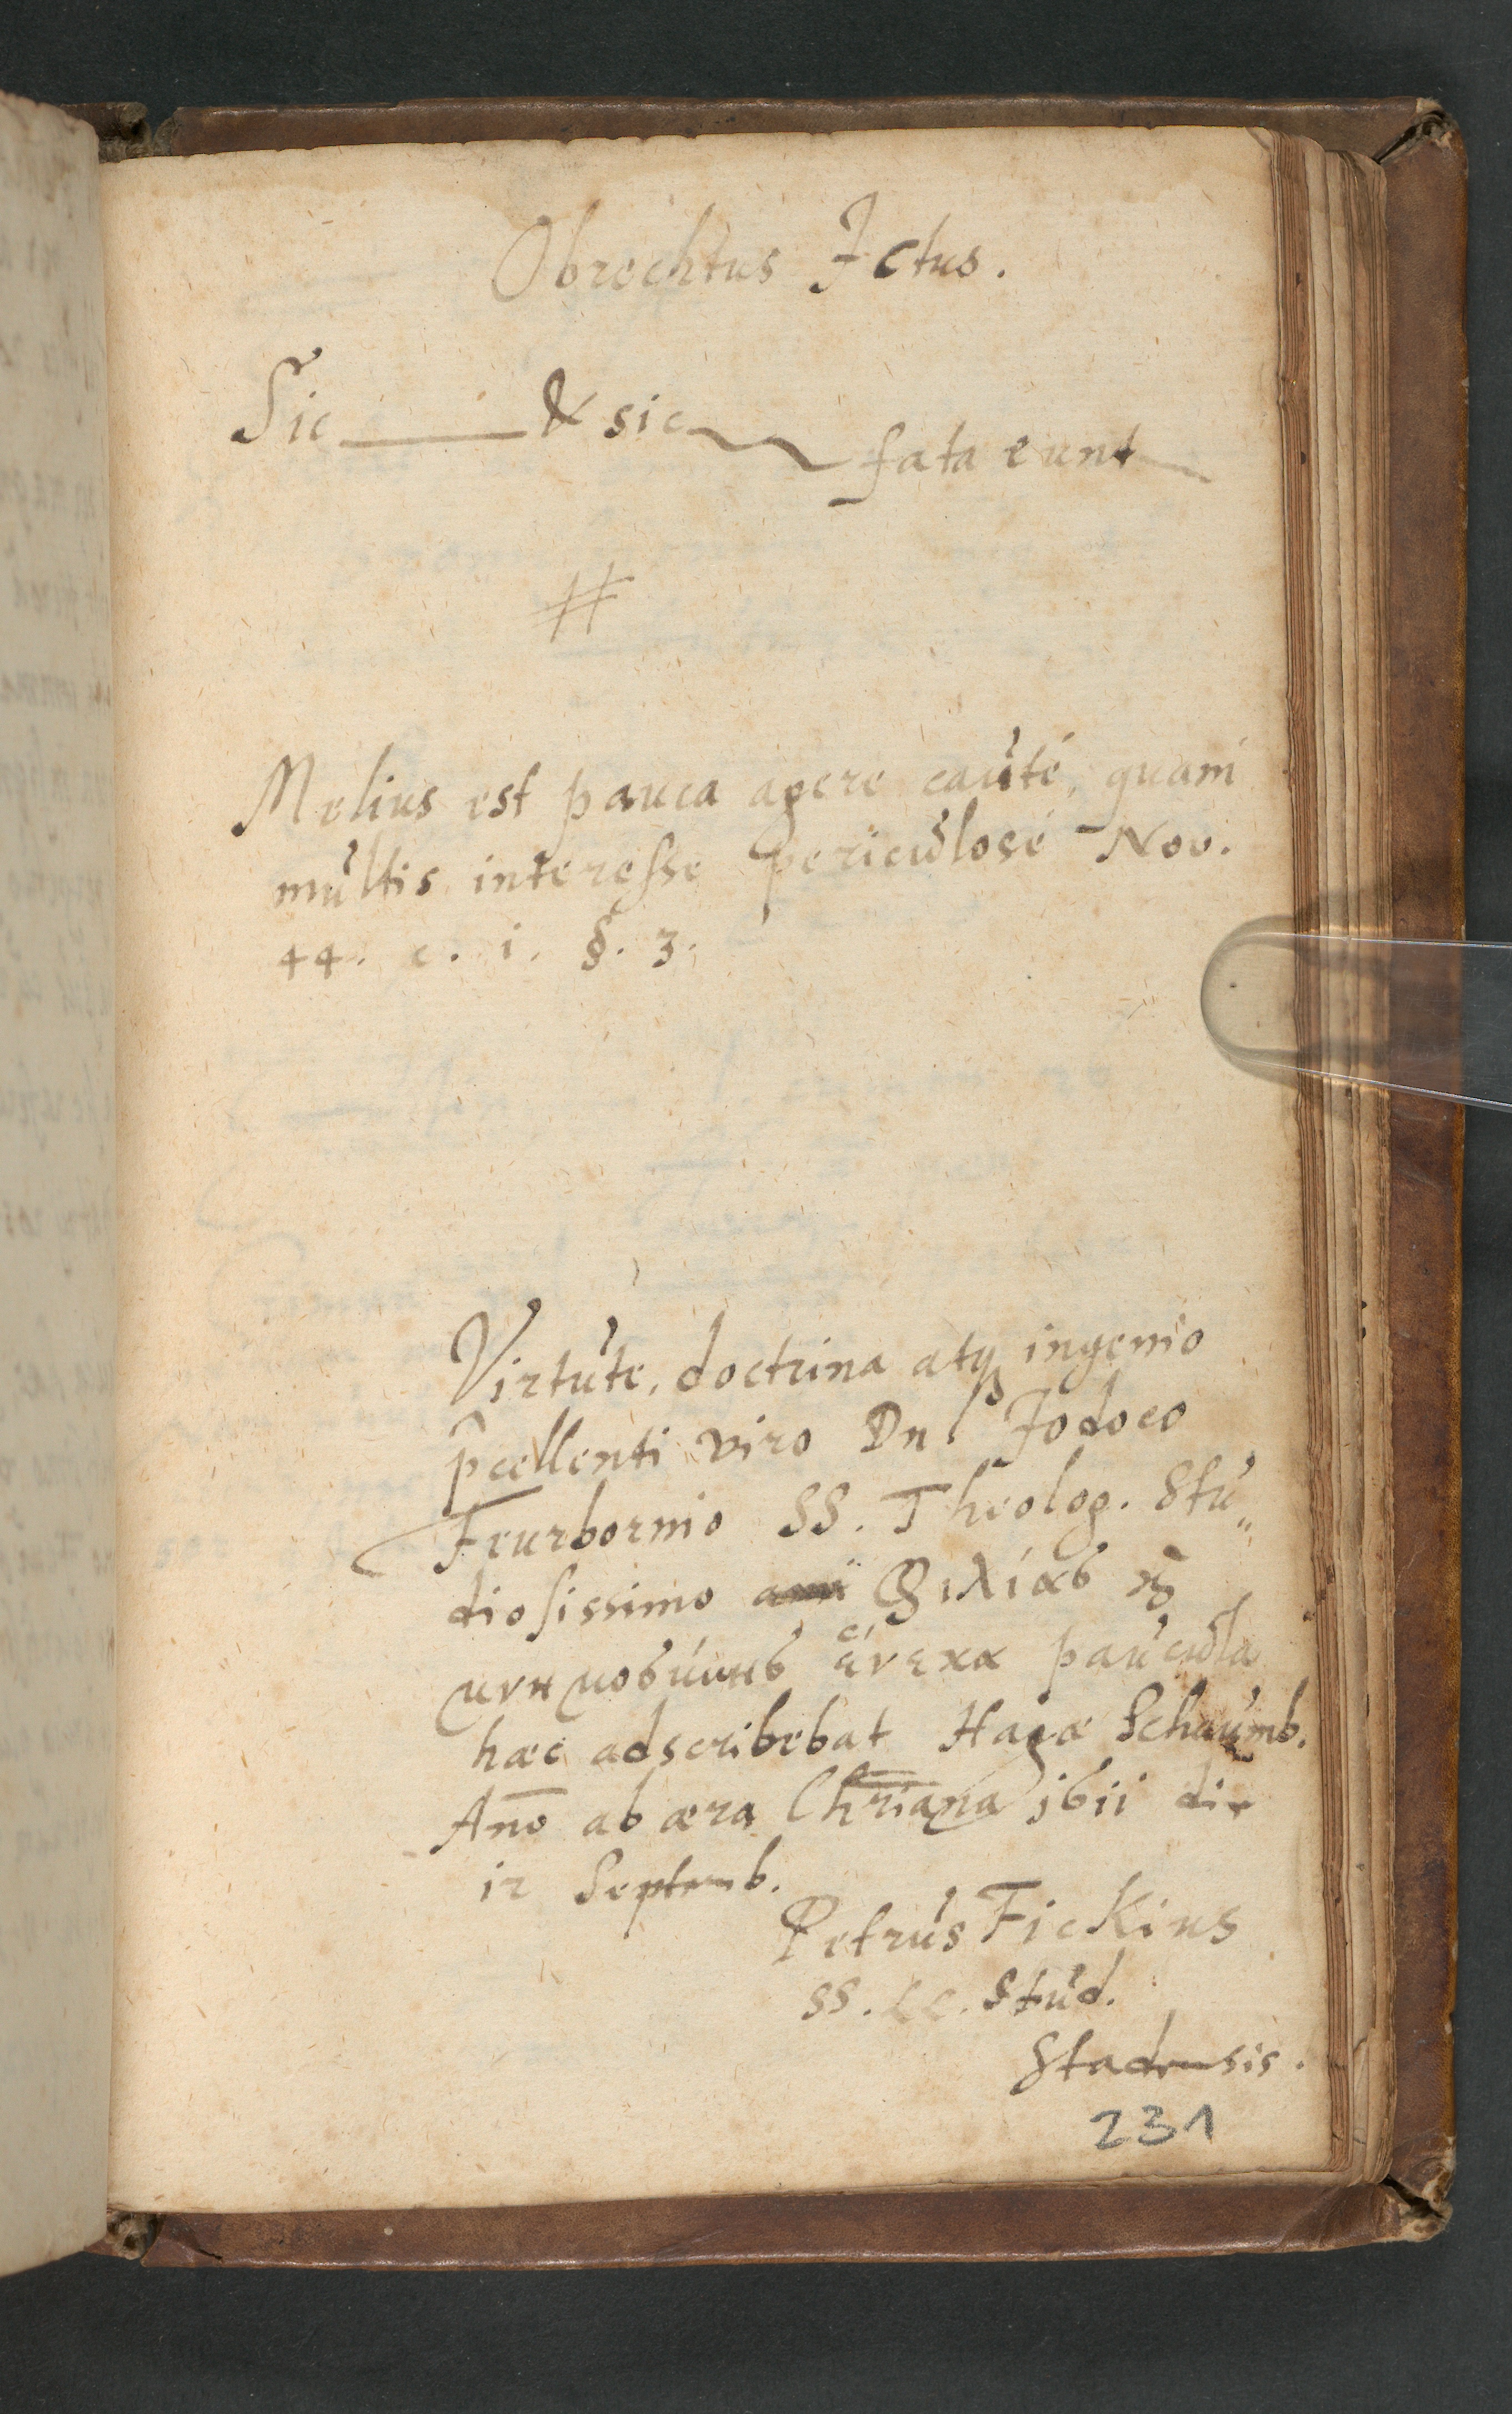 Obrechtus Jctus.
Sic & sic fata eunt
#
Melius est pauca agere cauté, quam
multis interesse periculosé Nov.
44. c. i. §. 3.
Virtute, doctrina atq ingenio
p̄cellenti viro Dn Jodoco
Feurbornio SS. Theolog. Stu„
diosissimo φιλίας κ
μνημοσύνης ἕνεκα paucula
hæc adscribebat Hagæ Schaumb.
Ano̅ ab æra Chr̅iana 1611 die
12 Septemb.
Petrus Fickius
SS. LL. Stud.
Stadensis.
231